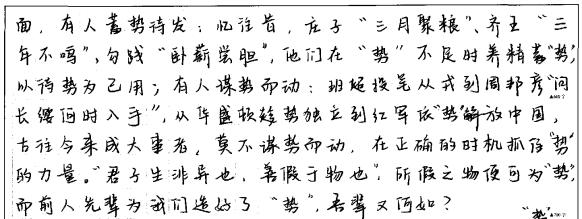 面，有人蓄势待发：忆往昔，庄子“三月聚粮”、齐王“三
年不鸣”，勾践“卧薪尝胆”，他们在“势”不足时养精蓄“势”，
以待势为己用；有人谋势而动：班超投笔从戎到周邦彦“问
长缨何时入手”，从华盛顿趁势独立到红军依“势”解放中国，
古往今来成大事者，莫不谋势而动，在正确的时机抓住“势”
的力量。“君子生非异也，善假于物也”，所假之物便可为“势”，
而前人先辈为我们造好了“势”，吾辈又何如？
“势”